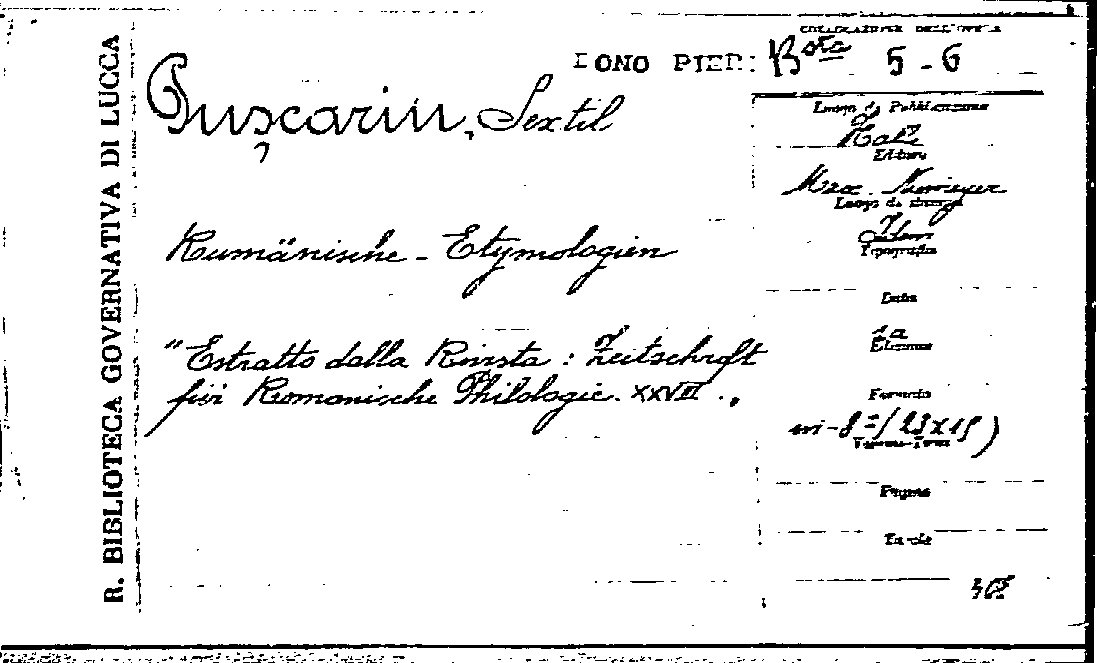 R. BIBLIOTECA GOVERNATIVA DI LUCCA
COLLOCAZIONE DELL'OPERA
DONO PIER: Bsta 5-6
Puşcariu, Sextil
Rumänische - Etymologien
"Estratto dalla Rivista: Zeitschrift
für Romanische Philologie. XXVII.„
Luogo di Pubblicazione
Editore
Max. Niemeyer
Luogo di stampa
Tipografia
Data
Edizione
Formato
in-8=(23x15)
Pagine
Tavole